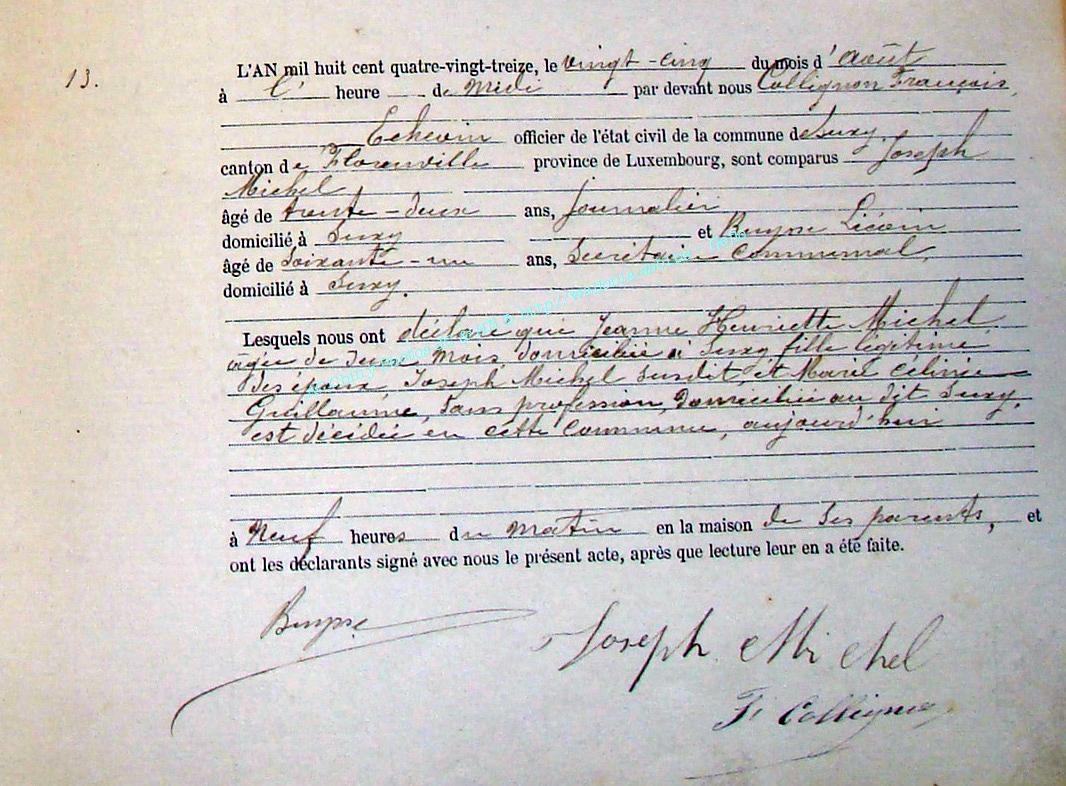 13.
L'AN mil huit cent quatre-vingt-treize, le vingt-cinq du mois d'août
à l' heure de Midi par devant nous Collignon François,
Echevin officier de l'état civil de la commune de Suxy,
canton de Florenville province de Luxembourg, sont comparus Joseph
Michel
âgé de trente-deux ans, Journalier
domicilié à Suxy et Buysse
âgé de soixante-un ans, Secrétaire Communal,
domicilié à Suxy.
Lesquels nous ont déclaré que Jeanne Henriette Michel,
âgée de deux mois, domiciliée à Suxy, fille légitime
des époux Joseph Michel susdit, et Marie Célinie
Guillaume, sans profession, domiciliée au dit Suxy,
est décédée en cette Commune, aujourd'hui
à Neuf heures du matin en la maison de ses parents, et
ont les déclarants signé avec nous le présent acte, après que lecture leur en a été faite.
Buysse
Joseph Michel
F. Collignon